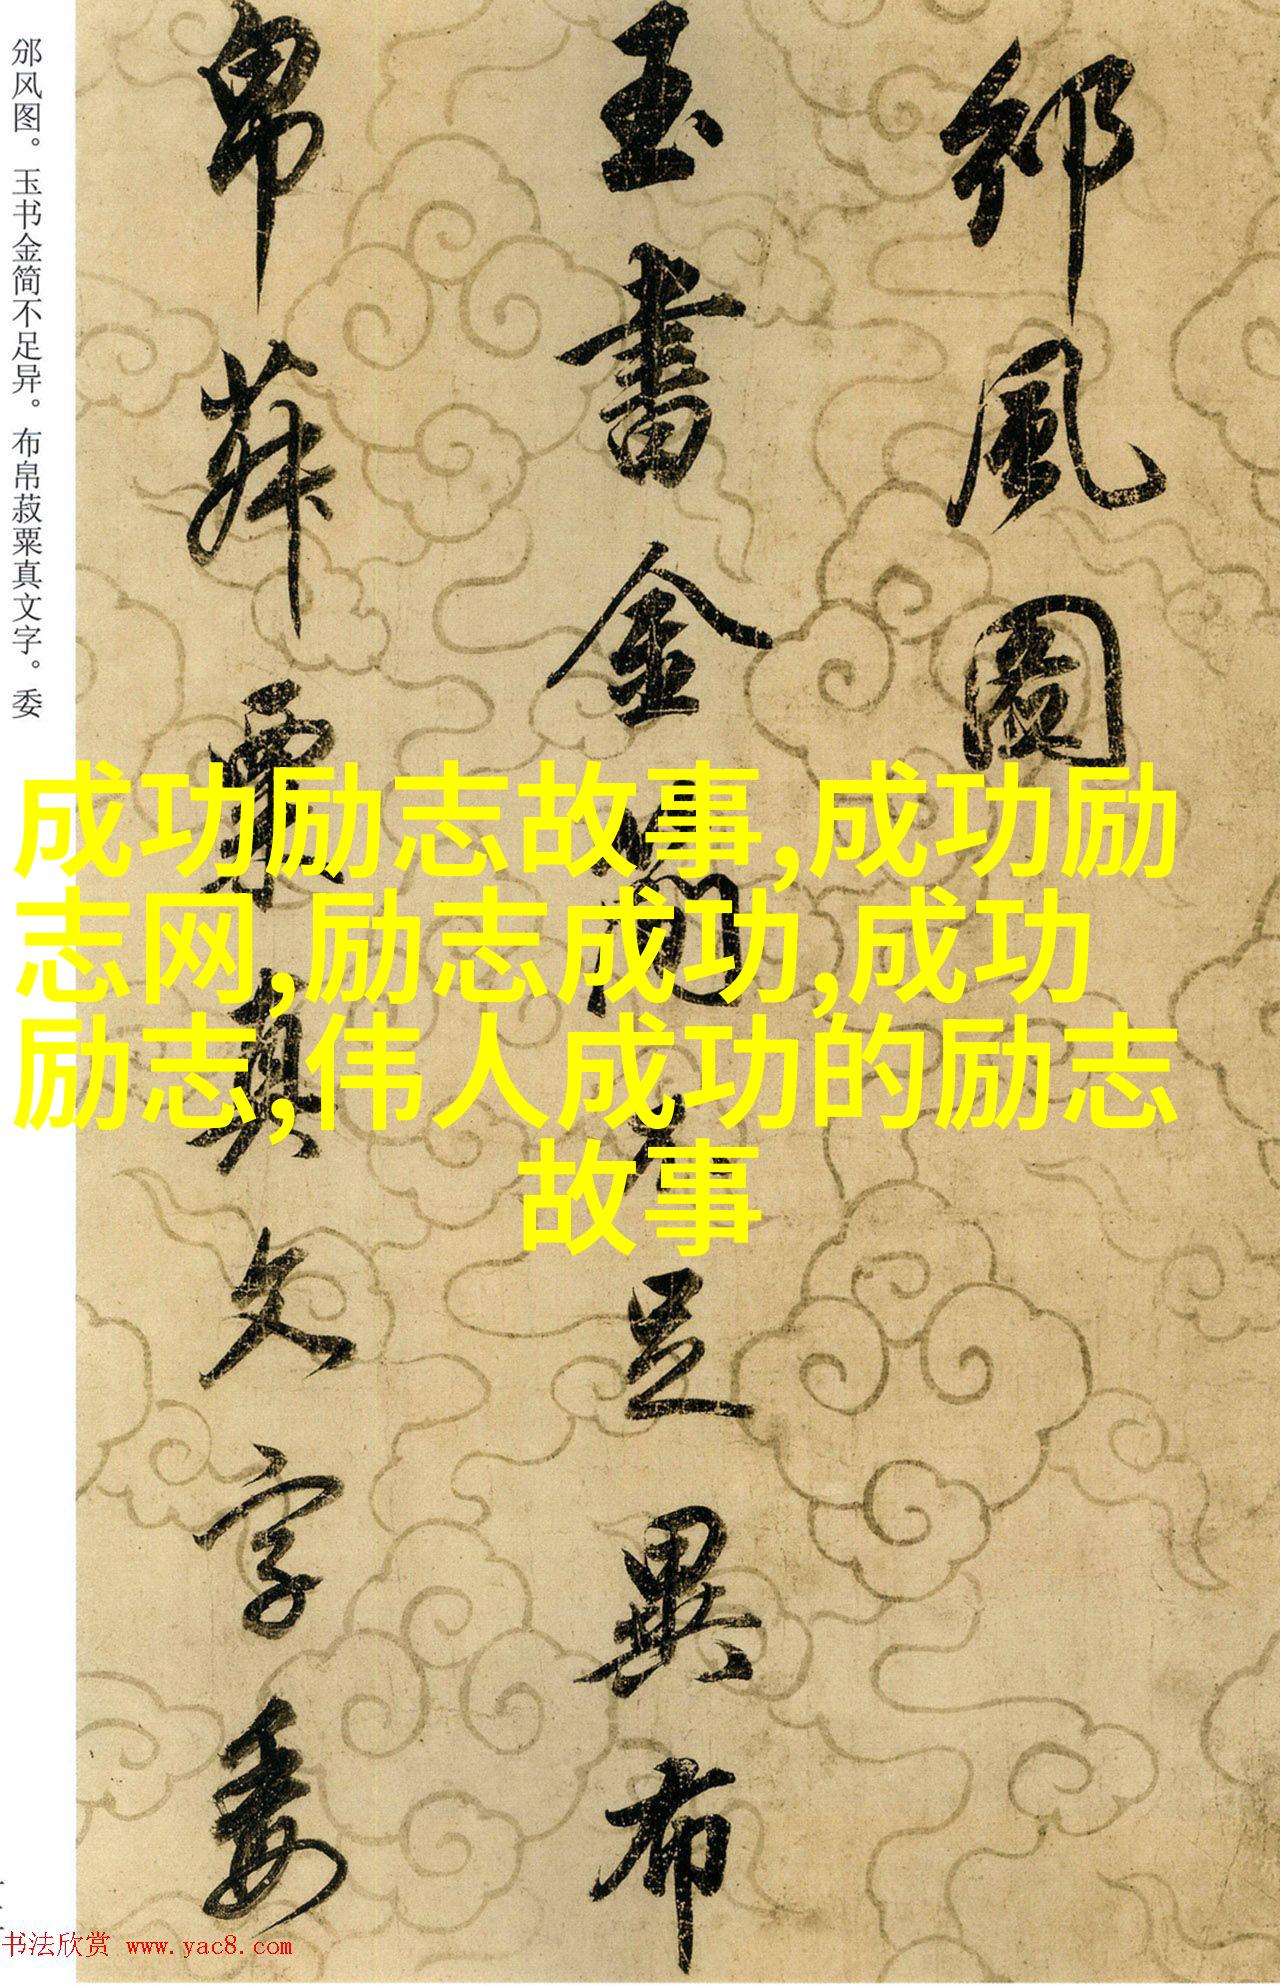 邠风图。玉书金简不足异。布帛菽粟真文字。委
邠風圖
玉書金簡不足異布
帛菽粟真文字委
成功励志故事,成功励
志网,励志成功,成功
励志,伟人成功的励志
故事
书法欣赏 www.yac8.com